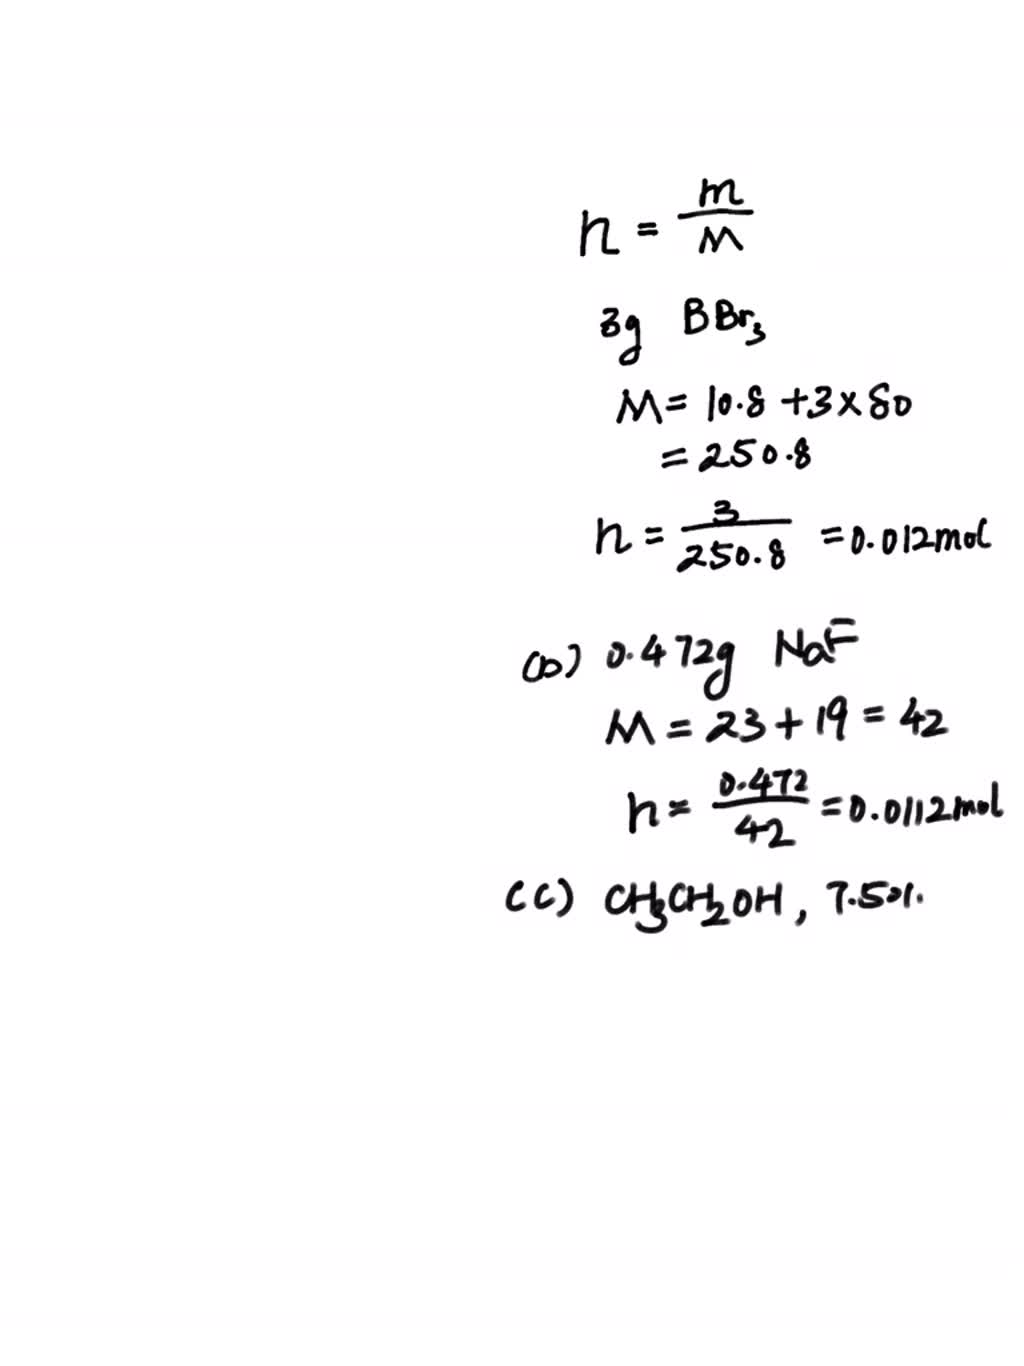 n = m/M
3g BBr₃
M = 10.8 + 3 × 80
= 250.8
n = 3/250.8 = 0.012 mol
(b) 0.472g NaF
M = 23 + 19 = 42
n = 0.472/42 = 0.0112 mol
(C) CH₃CH₂OH, 7.50%.